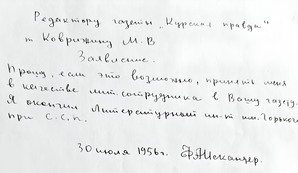 Редактору газеты „Курская правда"
т Коврижину М.В
Заявление.
Прошу, если это возможно, принять меня
в качестве лит.сотрудника в Вашу газету.
Я окончил Литературный ин-т им.Горького
при С.С.П.
30 июля 1956г. Ф.Искандер.